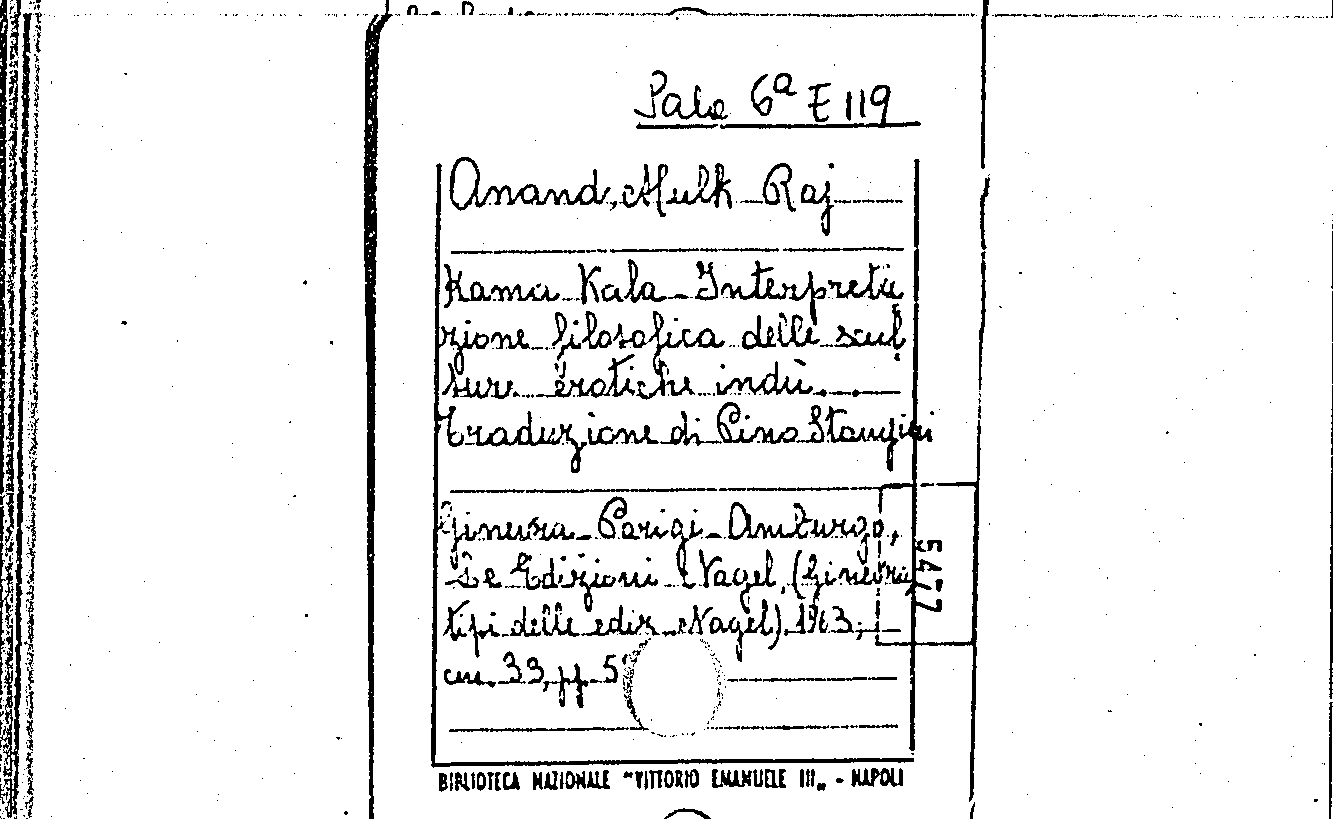 Sala 6ª E 119
Anand, Mulk Raj
Kama Kala - Interpreta
zione filosofica delle scul
ture erotiche indù...
Traduzione di Pino
Ginevra - Parigi - Amburgo,
Le Edizioni Nagel, (Ginevra,
tipi delle ediz. Nagel) 1963,
cm. 33, pp. 5
5477
BIBLIOTECA NAZIONALE "VITTORIO EMANUELE III„ - NAPOLI